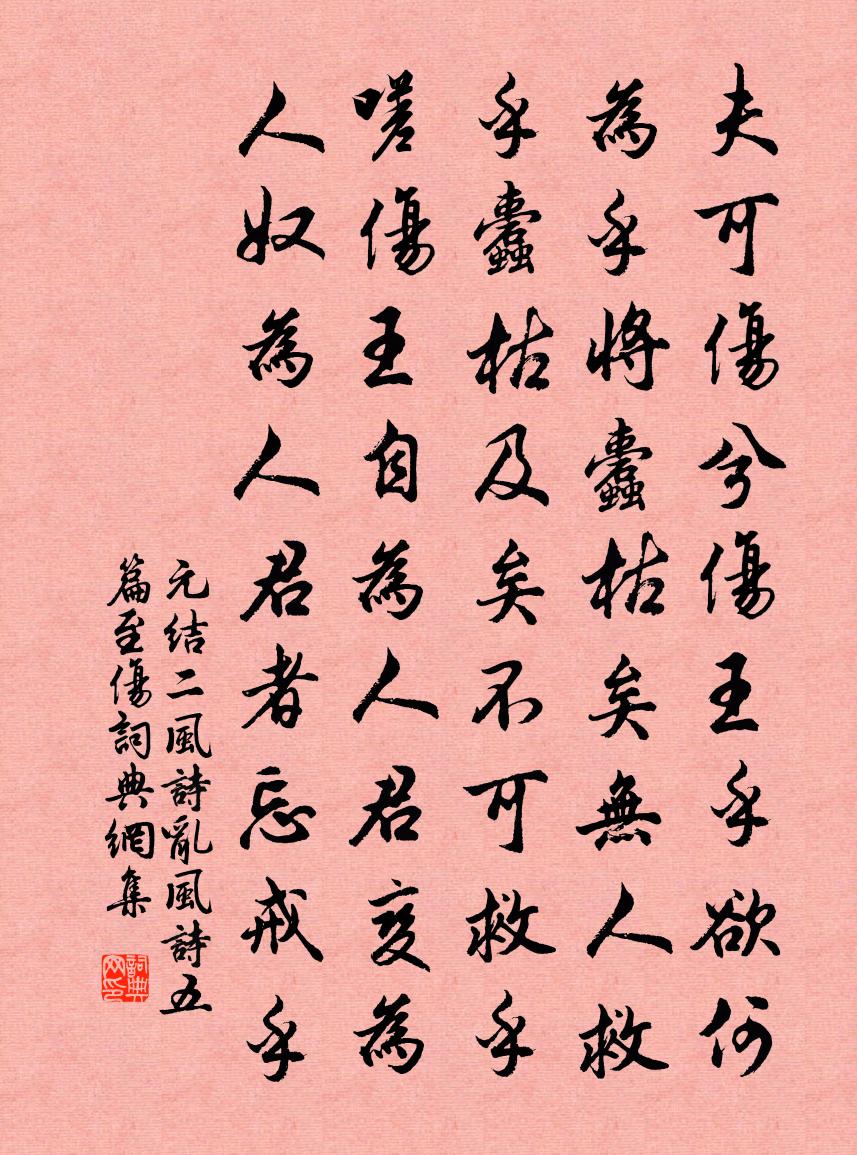 夫可傷兮傷王乎欲何
為乎將蠹枯矣無人救
乎蠹枯及矣不可救乎
嗟傷王自為人君變為
人奴為人君者忘戒乎
元結二風詩亂風詩五
篇至傷詞典網集
詞典
网印